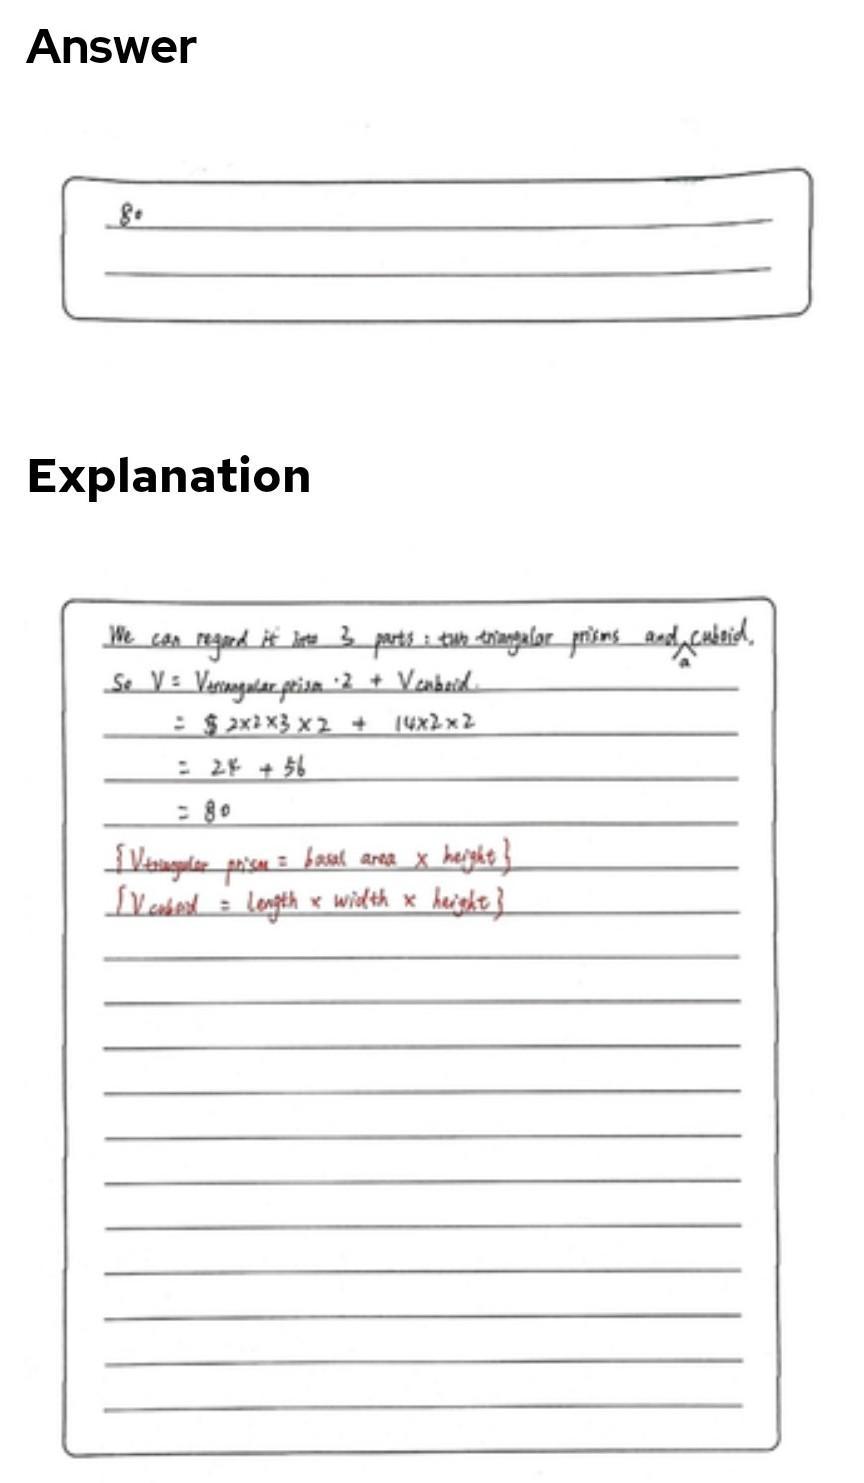 Answer
80
Explanation
We can regard it into 3 parts : two triangular prisms and a cuboid.
So V = Vtriangular prism · 2 + Vcuboid.
= 2×2×3×2 + 14×2×2
= 24 + 56
= 80
{Vtriangular prism = basal area × height}
{Vcuboid = length × width × height}